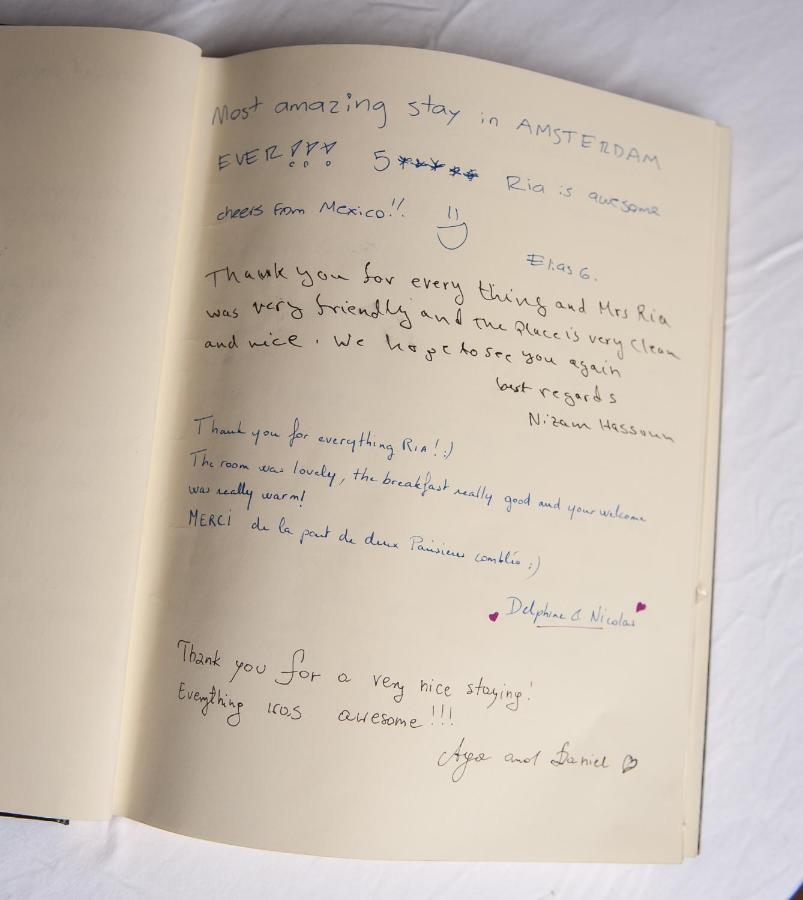 Most amazing stay in AMSTERDAM
EVER!!! 5 ***** Ria is awesome
cheers from Mexico!!
Elias G.
Thank you for every thing and Mrs Ria
was very friendly and the place is very clean
and nice. We hope to see you again
best regards
Nizam Hassoun
Thank you for everything RIA! :)
The room was lovely, the breakfast really good and your welcome
was really warm!
MERCI de la part de deux Parisiens comblés :)
Delphine & Nicolas
Thank you for a very nice staying!
Everything was awesome!!!
Aga and Daniel ♡